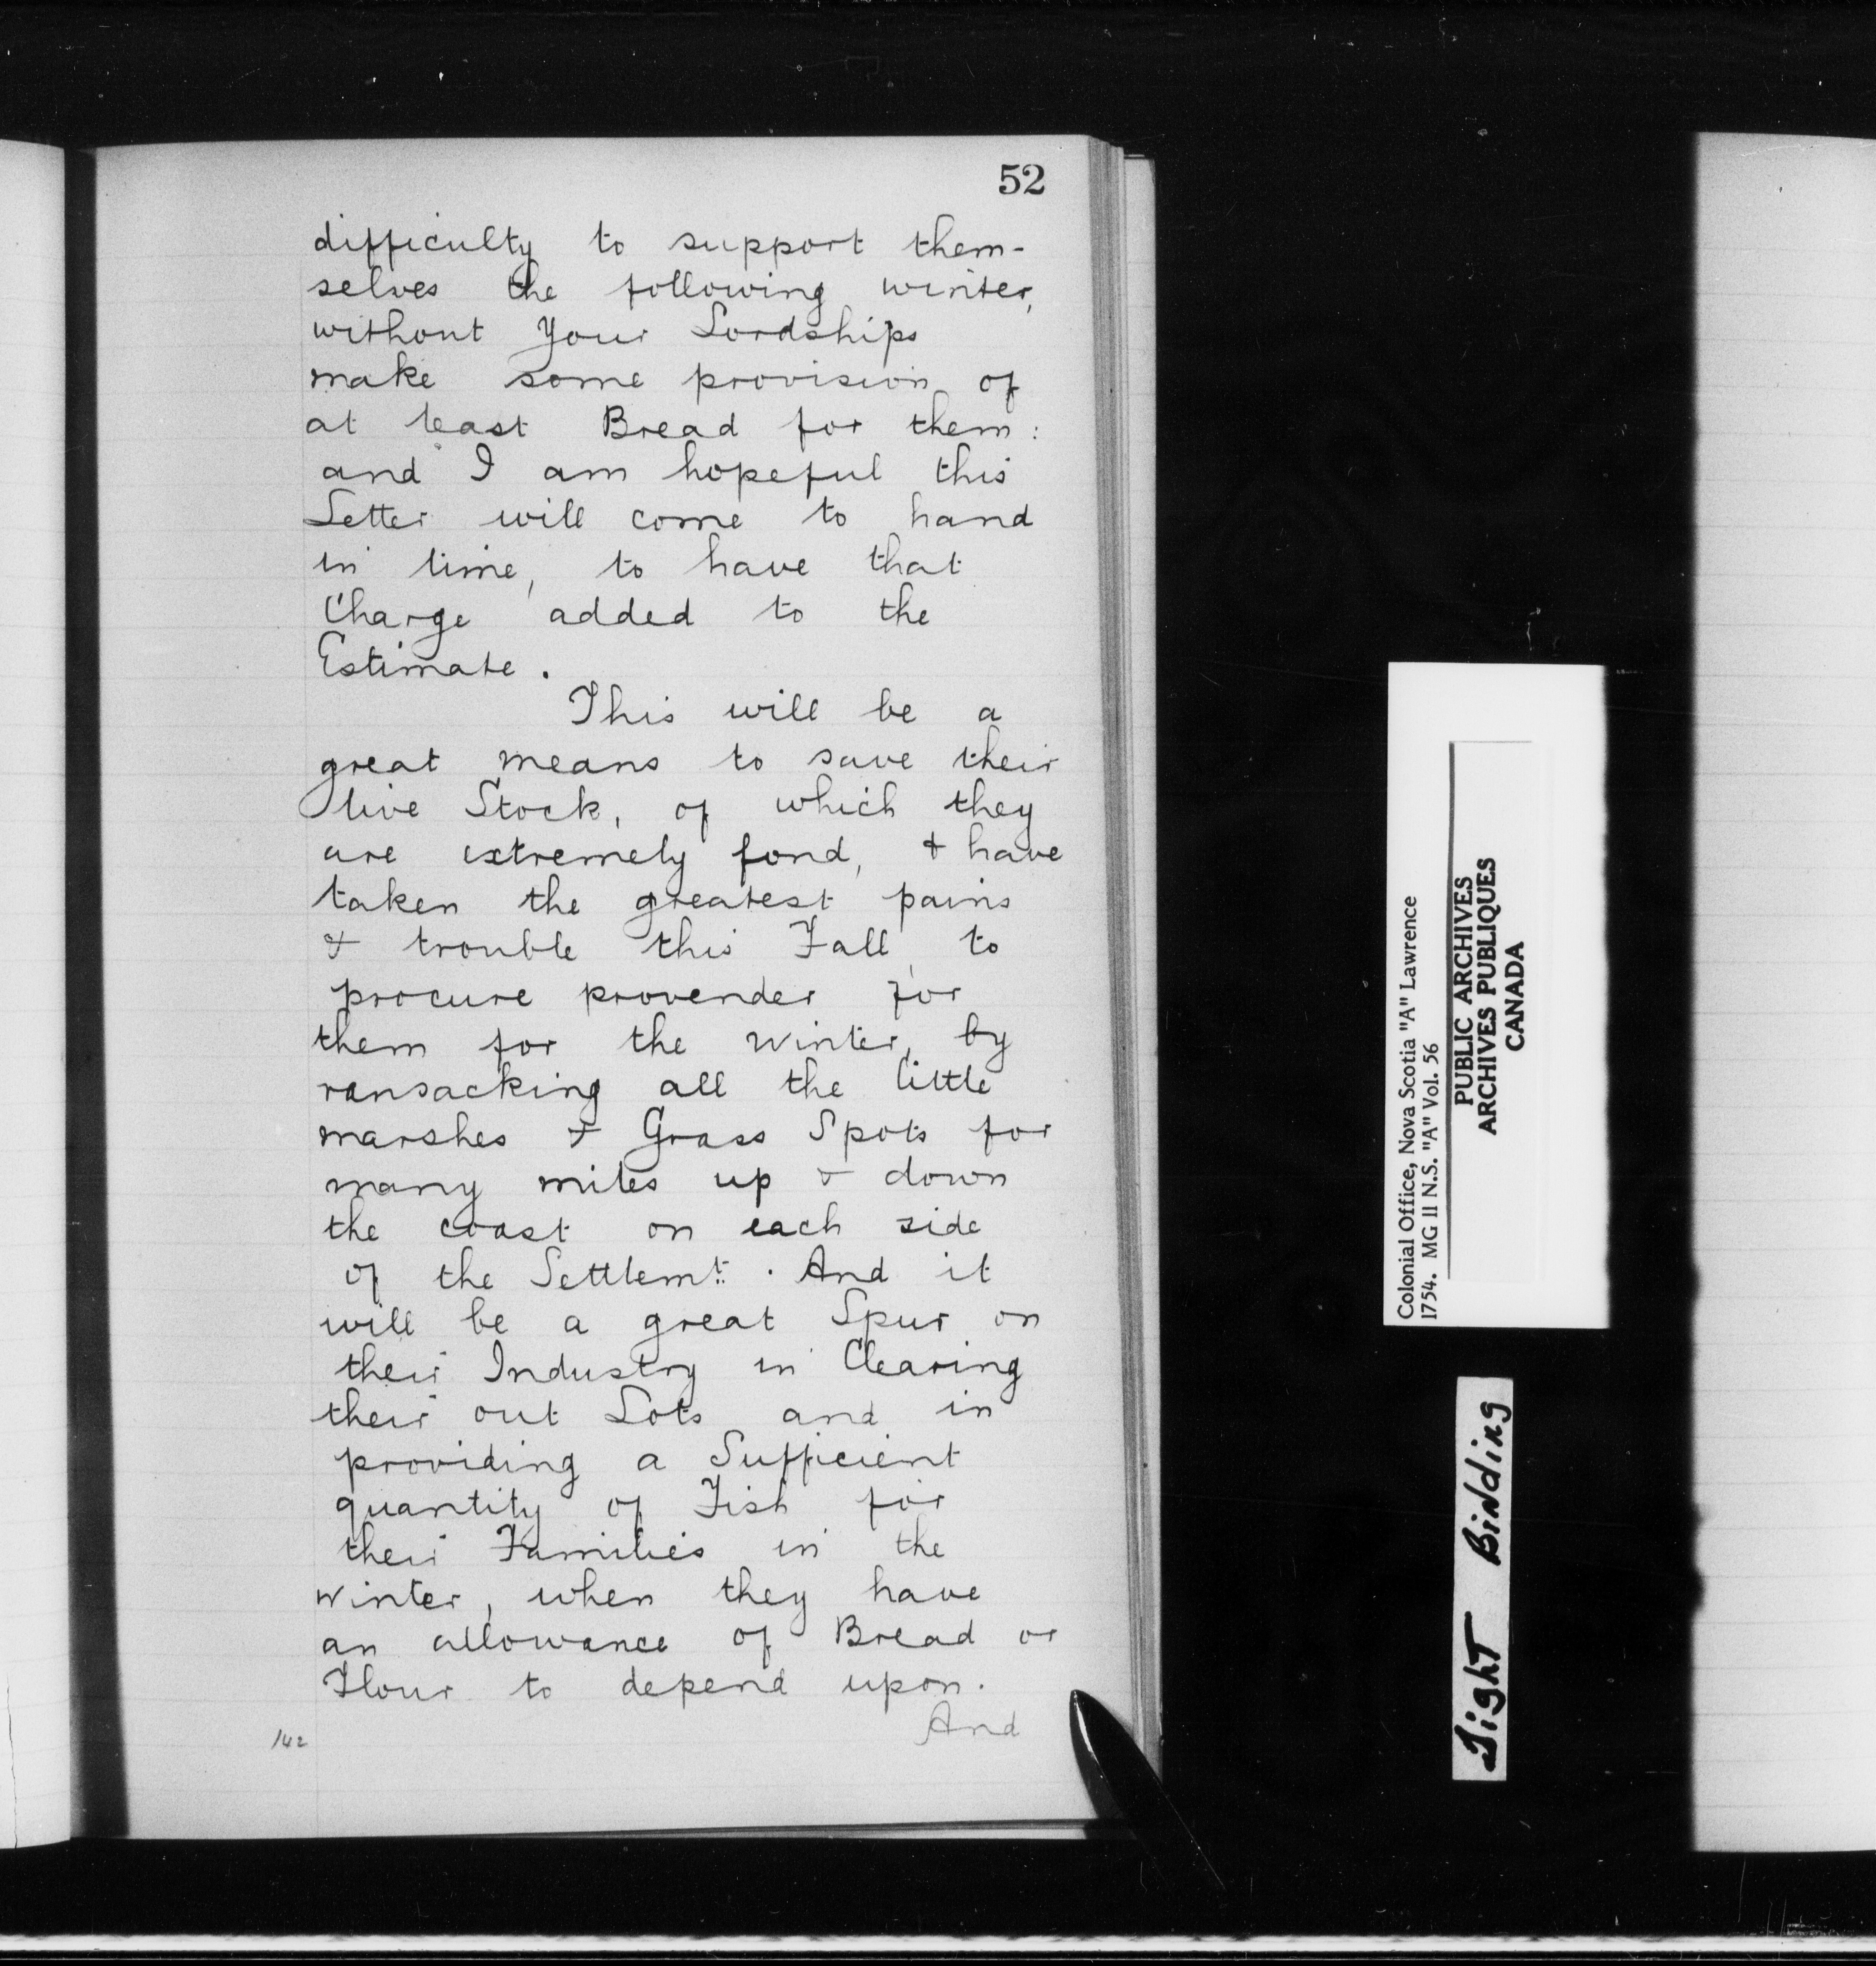 52
difficulty to support them-
selves the following winter,
without Your Lordships
make some provision of
at least Bread for them:
and I am hopeful this
Letter will come to hand
in time, to have that
Charge added to the
Estimate.
This will be a
great means to save their
live Stock, of which they
are extremely fond, & have
taken the greatest pains
& trouble this Fall, to
procure provender for
them for the winter, by
ransacking all the little
marshes & Grass Spots for
many miles up & down
the coast on each side
of the Settlemt. And it
will be a great Spur on
their Industry in Clearing
their out Lots and in
providing a Sufficient
quantity of Fish for
their Families in the
winter, when they have
an allowance of Bread or
Flour to depend upon.
And
142
Colonial Office, Nova Scotia "A" Lawrence
1754. MG 11 N.S. "A" Vol. 56
PUBLIC ARCHIVES
ARCHIVES PUBLIQUES
CANADA
Tight Binding